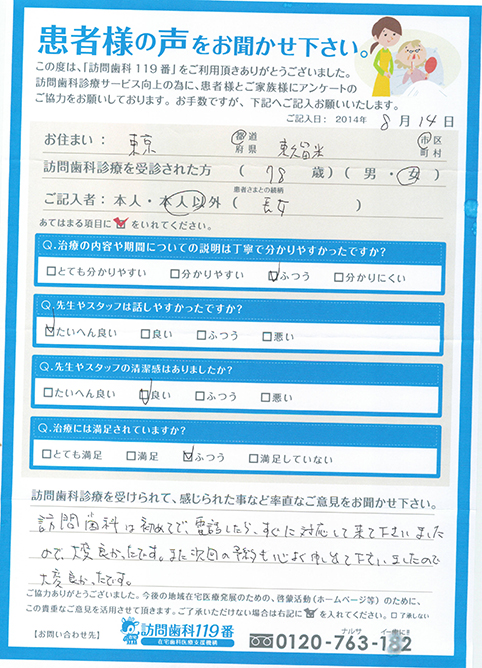 患者様の声をお聞かせ下さい。
この度は、「訪問歯科119番」をご利用頂きありがとうございました。
訪問歯科診療サービス向上の為に、患者様とご家族様にアンケートの
ご協力をお願いしております。お手数ですが、下記へご記入お願いいたします。
ご記入日： 2014年 8月14日
お住まい： 東京 都道府県 東久留米 市区町村
訪問歯科診療を受診された方 （ 78 歳）（ 男 ・ 女 ）
患者さまとの続柄
ご記入者： 本人 ・ 本人以外 （ 長女 ）
あてはまる項目に をいれてください。
Q.治療の内容や期間についての説明は丁寧で分かりやすかったですか？
□とても分かりやすい □分かりやすい ☑ふつう □分かりにくい
Q.先生やスタッフは話しやすかったですか？
☑たいへん良い □良い □ふつう □悪い
Q.先生やスタッフの清潔感はありましたか？
□たいへん良い ☑良い □ふつう □悪い
Q.治療には満足されていますか？
□とても満足 □満足 ☑ふつう □満足していない
訪問歯科診療を受けられて、感じられた事など率直なご意見をお聞かせ下さい。
訪問歯科は初めてで、電話したら、すぐに対応して来て下さいました
ので、大変良かったです。また次回の予約も心よく申し出て下さいましたので
大変良かったです。
ご協力ありがとうございました。今後の地域在宅医療発展のための、啓蒙活動（ホームページ等）のために、
この貴重なご意見を活用させて頂きます。ご了承いただけない場合は右記に を入れてください。 □了承しない
【お問い合わせ先】 訪問歯科119番
在宅歯科医療支援機構
ナルサ イーハニ
0120-763-182